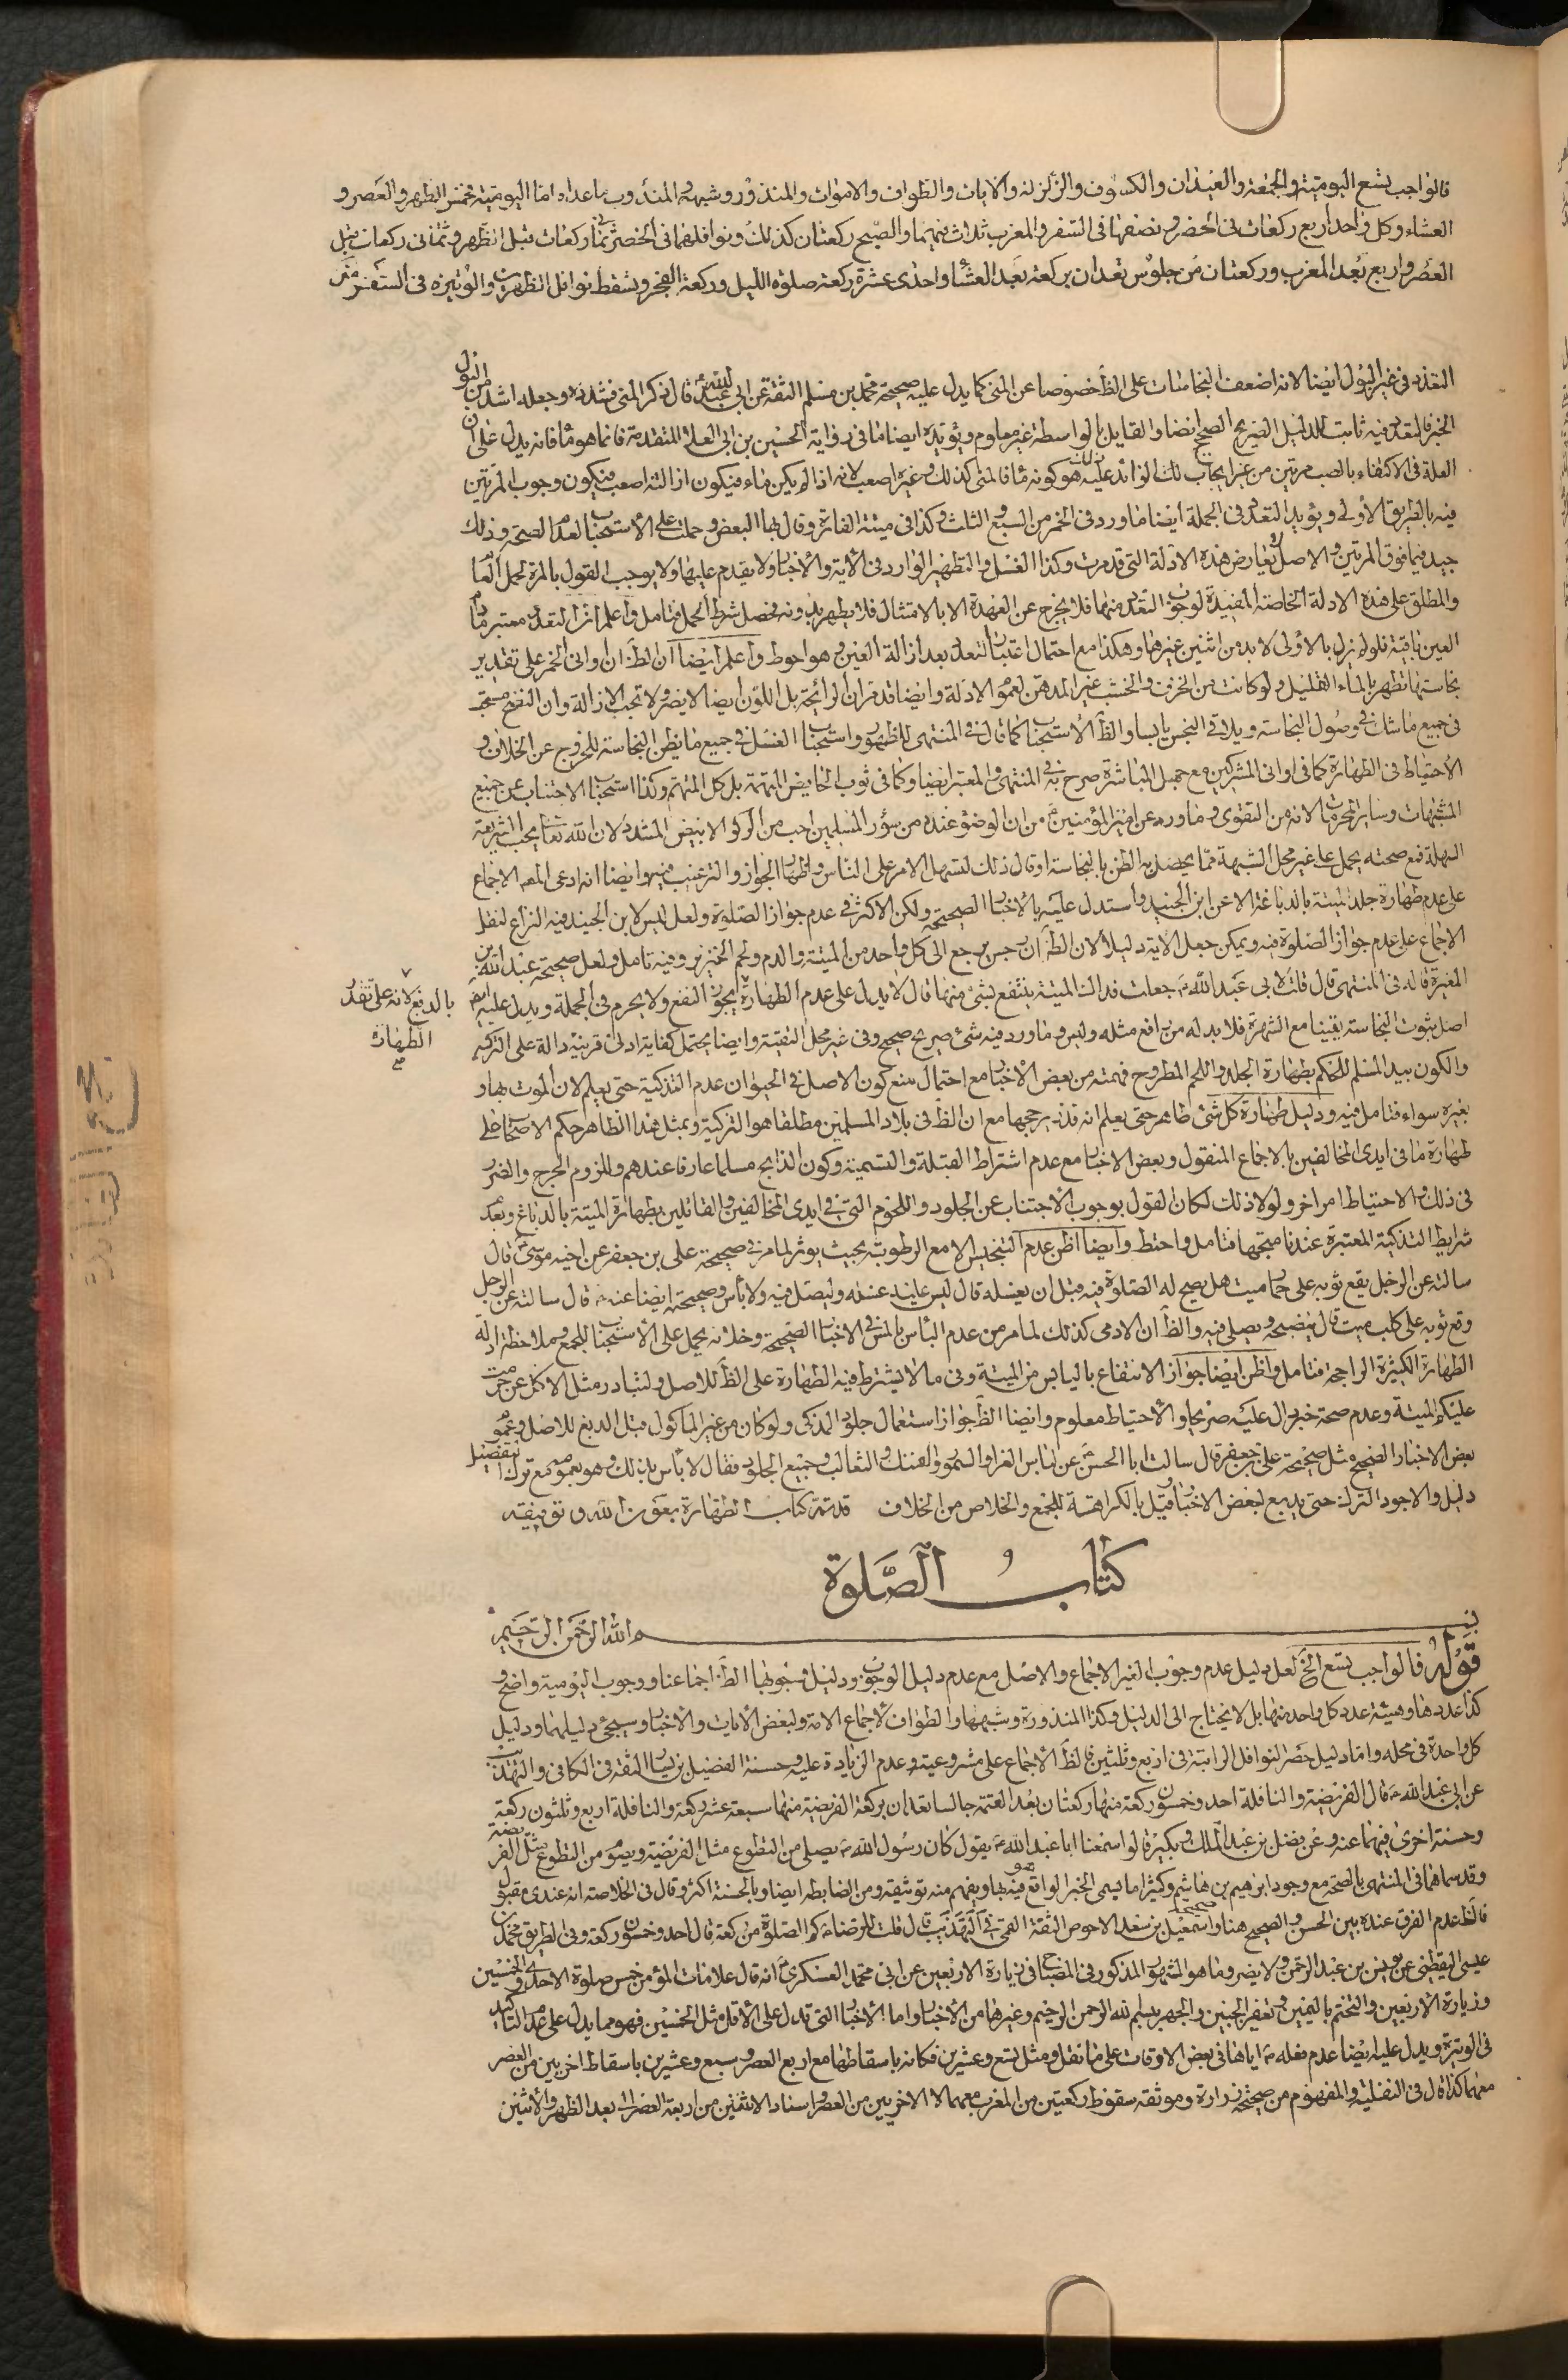 فالواجب تسع اليومية والجمعة والعيدان والكسوف والزلزلة والايات والطواف والاموات والمنذور وشبهه والمندوب ماعداه اما اليومية فخمس الظهر والعصر و
العشاء وكل واحد اربع ركعات فى الحضر ونصفها فى السفر والمغرب ثلاث فيهما والصبح ركعتان كذلك ونوافلهما فى الحضر ثمان ركعات قبل الظهر وثمانى ركعات قبل
العصر واربع بعد المغرب وركعتان من جلوس تعدان بركعة بعد العشاء واحدى عشرة ركعة صلوة الليل وركعة الفجر وتسقط نوافل الظهرين والوتيرة فى السفر
التعدد فى غير البول ايضا لانه اضعف النجاسات على الظ خصوصا عن المنى كما يدل عليه صحيحة محمد بن مسلم الثقة عن ابى عبد الله قال ذكر المنى فشدده وجعله اشد من البول
الخبر فالتعدد فيه ثابت للدليل الصريح الصحيح ايضا والقايل بالواسطة غير معلوم ويؤيده ايضا ما فى رواية الحسين بن ابى العلاء المتقدمة فانما هو ماء فانه يدل على ان
العلة فى الاكتفاء بالصب مرتين من غير ايجاب ذلك الزائد عليه هو كونه ماء فالمنى كذلك وغيره اصعب لانه اذا لم يكن ماء فيكون ازالته اصعب فيكون وجوب المرتين
فيه بالطريق الاولى ويؤيد التعدد فى الجملة ايضا ما ورد فى الخمر من السبع والثلث وكذا فى ميتة الفارة وقال بها البعض وحملت على الاستحباب لعدم الصحة وذلك
جيد فيما فوق المرتين والاصل لا يعارض هذه الادلة التى قدمرت وكذا الغسل والتطهير الوارد فى الاية والاخبار ولا يقدم عليها ولا يوجب القول بالمرة لحمل العام
والمطلق على هذه الادلة الخاصة المفيدة لوجوب التعدد منها فلا يخرج عن العهدة الا بالامتثال فلا يطهر بدونه فحصل شرط الحمل فتامل واعلم ان التعدد معتبر مادام
العين باقية فلو لم يزل بالاولى لابد من اثنين غيرها وهكذا مع احتمال اعتبار التعدد بعد ازالة العين وهو احوط واعلم ايضا ان الظ ان اوانى الخمر على تقدير
نجاستها تطهر بالماء القليل ولو كانت من الخزف والخشب غير المدهن لعموم الادلة وايضا قد مر ان الرائحة بل اللون ايضا لا يضر ولا تجب الازالة وان النضح مستحب
فى جميع ما شك فى وصول النجاسة ويلاقى النجس يابسا والظ الاستحباب كما قال فى المنتهى للاظهر واستحباب الغسل فى جميع ما يظن النجاسة للخروج عن الخلاف و
الاحتياط فى الطهارة كما فى اوانى المشركين مع جهل المباشرة صرح به فى المنتهى والمعتبر ايضا وكما فى ثوب الحايض المتهمة بل كل المتهم وكذا استحباب الاجتناب عن جميع
المشتبهات وساير المحرمات لانه من التقوى وما ورد عن امير المؤمنين من ان الوضوء عنده من سؤر المسلمين احب من الركو الابيض المشدد لان الله تعا يحب الشريعة
السهلة فمع صحته يحمل على غير محل الشبهة مما يحصل به الظن بالنجاسة او قال ذلك لتسهل الامر على الناس ولاظهار الجواز والترغيب فيه وايضا انه ادعى المصـ الاجماع
على عدم طهارة جلد الميتة بالدباغة الا عن ابن الجنيد واستدل عليه بالاخبار الصحيحة ولكن الاكثر فى عدم جواز الصلوة ولعل ليس لابن الجنيد فيه النزاع لنقل
الاجماع على عدم جواز الصلوة فيه ويمكن جعل الاية دليلا لان الظ ان رجس يرجع الى كل واحد من الميتة والدم ولحم الخنزير وفيه تامل ولعل صحيحة عبد الله بن
المغيرة قاله فى المنتهى قال قلت لابى عبد الله جعلت فداك الميتة ينتفع بشئ منها قال لا يدل على عدم الطهارة لا يجوز النفع ولا يحرم فى الجملة ويدل عليه ايضا
بالدبغ لانه على تقدير
الطهارة
صح
اصل بثوت النجاسة يقينا مع الشهرة فلا بد له من رافع مثله وليس وما ورد فيه شئ صريح صحيح وفى غير محل التقية وايضا يحتمل كفاية ادنى قرينة دالة على التزكية
والكون بيد المسلم للحكم بطهارة الجلد واللحم المطروح فهمته من بعض الاخبار مع احتمال منع كون الاصل فى الحيوان عدم التذكية حتى يعلم لان الموت بها و
بغيره سواء فتامل فيه ودليل طهارة كل شئ طاهر حتى يعلم انه قذر يرجحها مع ان الظ فى بلاد المسلمين مطلقا هو التزكية وبمثل هذا الظاهر حكم الاصحاب على
طهارة ما فى ايدى المخالفين بالاجماع المنقول وبعض الاخبار مع عدم اشتراط القبلة والتسمية وكون الذابح مسلما عارفا عندهم وللزوم الحرج والضرر
فى ذلك والاحتياط امر اخر ولولا ذلك لكان القول بوجوب الاجتناب عن الجلود واللحوم التى فى ايدى المخالفين والقائلين بطهارة الميتة بالدباغ وبعدم
شرايط التذكية المعتبرة عندنا متجها فتامل واحتط وايضا اظن عدم التنجيس الا مع الرطوبة بحيث يوثر لما مر فى صحيحة على بن جعفر عن اخيه موسى قال
سالته عن الرجل يقع ثوبه على حمار ميت هل يصح له الصلوة فيه قبل ان يغسله قال ليس عليه غسله وليصل فيه ولا بأس وصحيحته ايضا عنه قال سالته عن الرجل
وقع ثوبه على كلب ميت قال ينضحه ويصلى فيه والظ ان الادمى كذلك لما مر من عدم البأس بالمس فى الاخبار الصحيحة وخلافه يحمل على الاستحباب للجمع وملاحظة ادلة
الطهارة الكثيرة الراجحة فتامل واظن ايضا جواز الانتفاع باليابس من الميتة وفى ما لا يشترط فيه الطهارة على الظ للاصل ولتبادر مثل الاكل عن حرمت
عليكم الميتة وعدم صحة خبر دال عليه صريحا والاحتياط معلوم وايضا الظ جواز استعمال جلود المذكى ولو كان من غير المأكول قبل الدبغ للاصل وعموم
بعض الاخبار الصحيح مثل صحيحة على بن جعفر قال سالت ابا الحسن عن لباس الفراء والسمور والفنك والثعالب وجميع الجلود فقال لا بأس بذلك وهو بعمومه مع ترك التفصيل
دليل والاجود الترك حتى يدبع لبعض الاخبار وقيل بالكراهة للجمع والخلاص من الخلاف قد تم كتاب الطهارة بعون الله وتوفيقه
كتاب الصلوة
بسم الله الرحمن الرحيم
قوله فالواجب تسع الخ لعل دليل عدم وجوب الغير الاجماع والاصل مع عدم دليل الوجوب ودليل وجوبها الظ اجماعنا ووجوب اليومية واضح و
كذا عددها وهيئة عدد كل واحد منها بل لا يحتاج الى الدليل وكذا المنذورة وشبهها والطواف لاجماع الامة ولبعض الايات والاخبار وسيجئ دليلهما ودليل
كل واحدة فى محله واما دليل حصر النوافل الراتبة فى اربع وثلثين فالظ الاجماع على مشروعيته وعدم الزيادة عليه وحسنة الفضيل بن يسار الثقة فى الكافى والتهذيب
عن ابى عبد الله قال الفريضة والنافلة احد وخمسون ركعة منها ركعتان بعد العتمة جالسا تعدان بركعة الفريضة منها سبعة عشر ركعة والنافلة اربع وثلثون ركعة
وحسنة اخرى فيهما عنه وعن فضل بن عبد الملك وبكير قالوا سمعنا ابا عبد الله يقول كان رسول الله يصلى من التطوع مثل الفريضة ويصوم من التطوع مثل الفريضة
وقد سماهما فى المنتهى بالصحة مع وجود ابرهيم بن هاشم وكثيرا ما يسمى الخبر الواقع هو فيه بها ويفهم منه توثيقه ومن الضابطة ايضا وبالحسنة اكثر وقال فى الخلاصة انه عندى مقبول
فالظ عدم الفرق عنده بين الحسن والصحيح هنا وصحيحة اسمعيل بن سعد الاحوص الثقة القمى فى التهذيب قال قلت للرضا كم الصلوة من ركعة قال احد وخمسون ركعة وفى الطريق محمد بن
عيسى اليقطينى عن يونس بن عبد الرحمن ولا يضر وما هو المشهور المذكور فى المصباح فى زيارة الاربعين عن ابى محمد العسكرى انه قال علامات المؤمن خمس صلوة الاحدى والخمسين
وزيارة الاربعين والتختم باليمين وتعفير الجبين والجهر ببسم الله الرحمن الرحيم وغيرها من الاخبار واما الاخبار التى تدل على الاقل مثل الخمسين فهو مما يدل على عدم التاكيد
فى الوتيرة ويدل عليه ايضا عدم فعله اياها فى بعض الاوقات على ما نقل ومثل تسع وعشرين فكانه باسقاطها مع اربع العصر وسبع وعشرين باسقاط اخريين من العصر
معها كذا قال فى النفلية والمفهوم من صحيحة زرارة وموثقه سقوط ركعتين من المغرب معهما لا الاخريين من العصر واسناد الاثنين من اربعة العصر الى بعد الظهر والاثنين